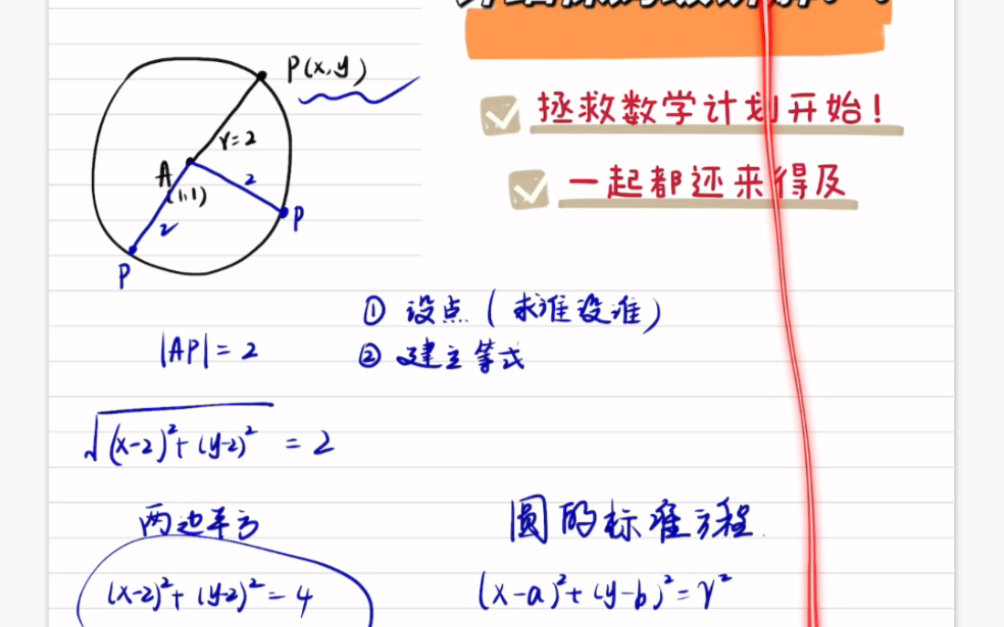 P(x,y)
r=2
A
(1,1)
2
2
P
P
拯救数学计划开始!
一起都还来得及
① 设点(求谁设谁)
|AP|=2
② 建立等式
√(x-2)²+(y-2)² = 2
两边平方
圆的标准方程.
(x-2)²+(y-2)²=4
(x-a)²+(y-b)²=r²